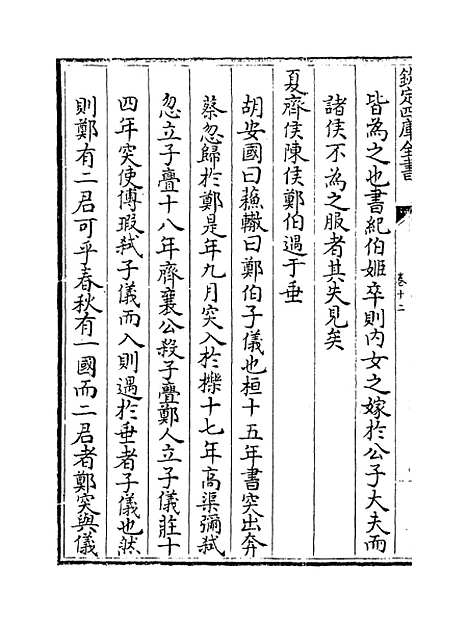 欽定四庫全書
卷十二
皆為之也書紀伯姬卒則内女之嫁於公子大夫而
諸侯不為之服者其失見矣
夏齊侯陳侯鄭伯遇于垂
胡安國曰蘓轍曰鄭伯子儀也桓十五年書突出奔
蔡忽歸於鄭是年九月突入於櫟十七年高渠彌弑
忽立子亹十八年齊襄公殺子亹鄭人立子儀莊十
四年突使傅瑕弑子儀而入則遇於垂者子儀也然
則鄭有二君可乎春秋有一國而二君者鄭突與儀